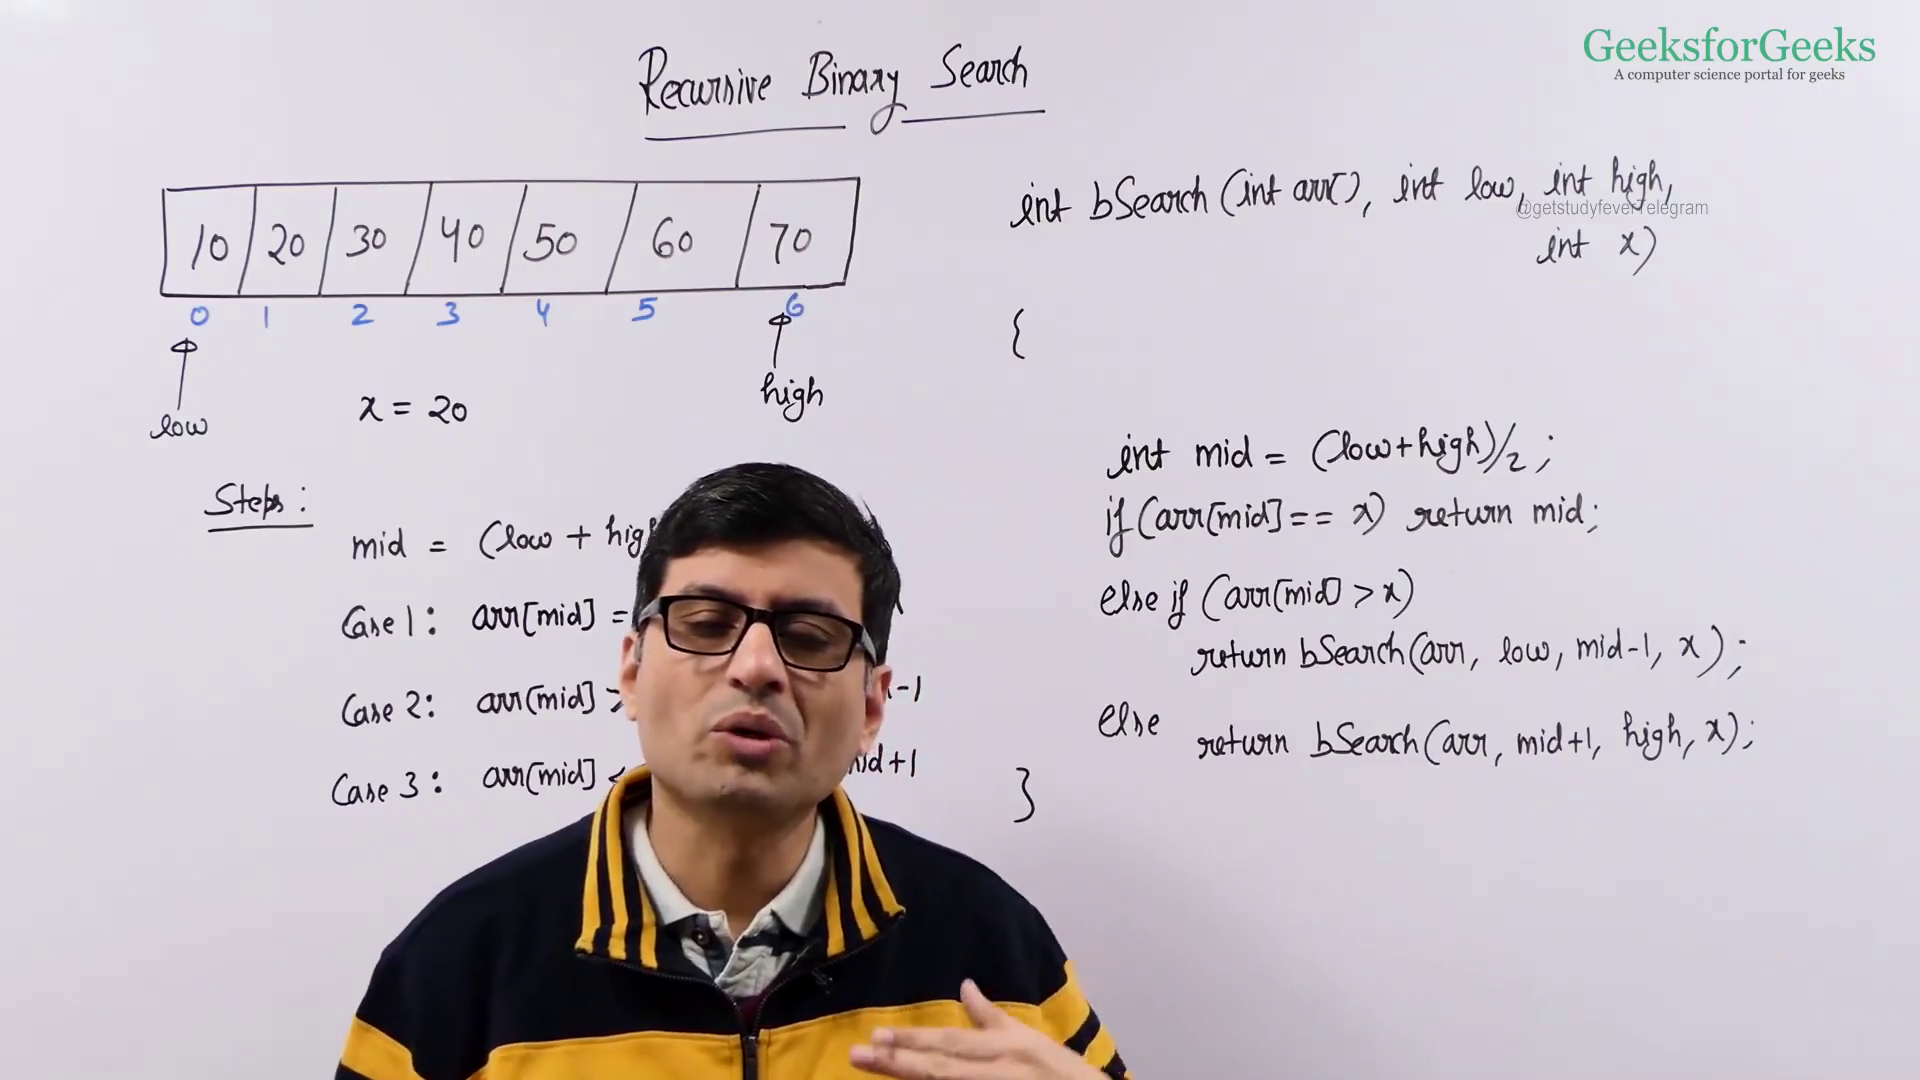 GeeksforGeeks
A computer science portal for geeks
Recursive Binary Search
10 20 30 40 50 60 70
0 1 2 3 4 5 6
low
high
x = 20
Steps:
mid = (low + high
Case 1: arr[mid] =
Case 2: arr[mid] > -1
Case 3: arr[mid] < mid+1
int bSearch (int arr[], int low, int high,
@getstudyfever Telegram
int x)
{
int mid = (low+high)/2;
if (arr[mid] == x) return mid;
else if (arr[mid] > x)
return bSearch(arr, low, mid-1, x);
else return bSearch(arr, mid+1, high, x);
}